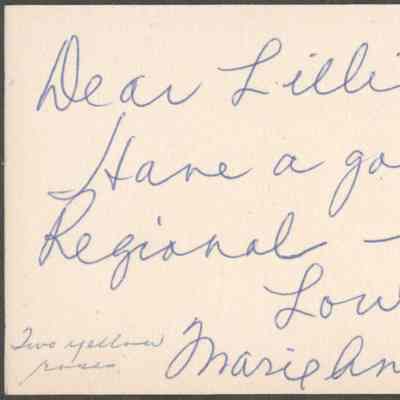 Dear Lilli
Have a go
Regional —
Lov
Marie An
Two yellow
roses